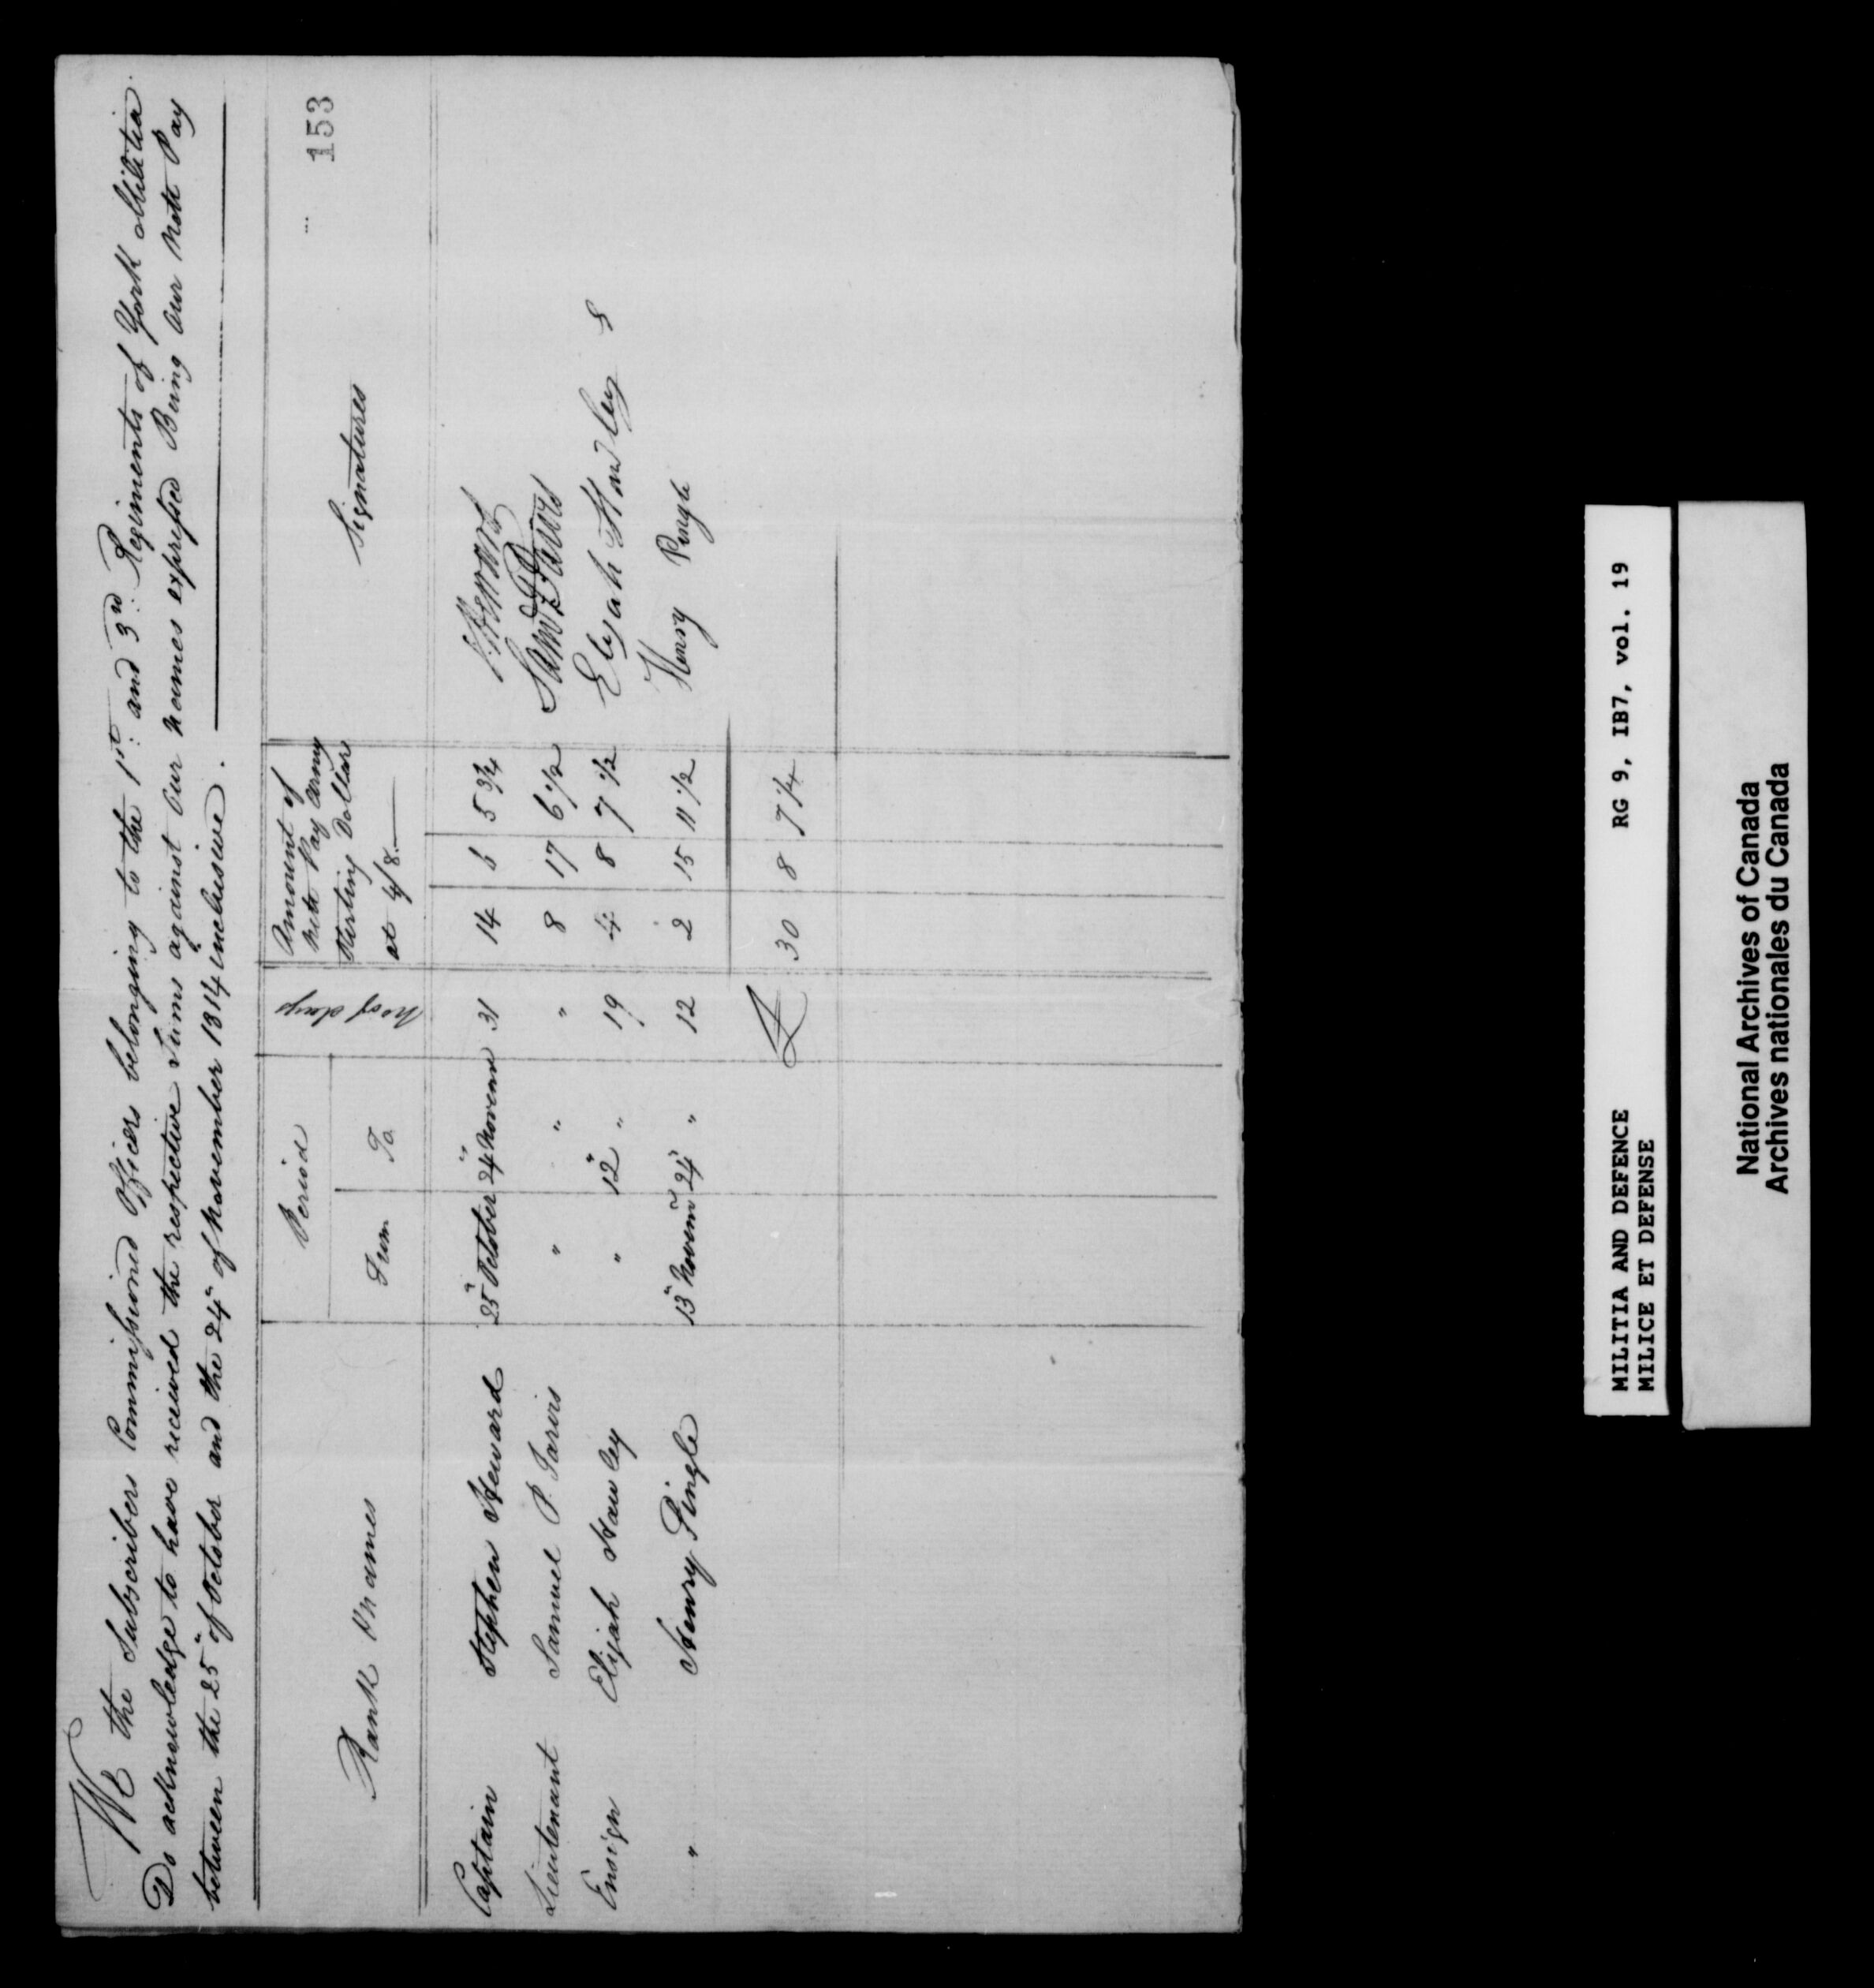 We the Subscribers Commissioned Officers belonging to the 1st: and 3rd: Regiments of York Militia
Do acknowledge to have received the respective Sums against our names expressed Being our nett Pay
between the 25" of October and the 24" of November 1814 inclusive.
153
Rank & Names
Period
From
To
No of days
Amount of
Nett Pay Army
Sterling Dollars
at 4/8
Signatures
Captain Stephen Heward 25" October 24" Novemr 31 14 6 5 3/4 S Heward
Lieutenant Samuel P. Jarvis " " " 8 17 6 1/2 Saml P Jarvis
Ensign Elijah Hawley " 12" " 19 4 8 7 1/2 Elijah Hawley
" Henry Pingle 13" Novemr 24" " 12 2 15 11 1/2 Henry Pingle
£ 30 8 7 1/4
MILITIA AND DEFENCE RG 9, IB7, vol. 19
MILICE ET DEFENSE
National Archives of Canada
Archives nationales du Canada